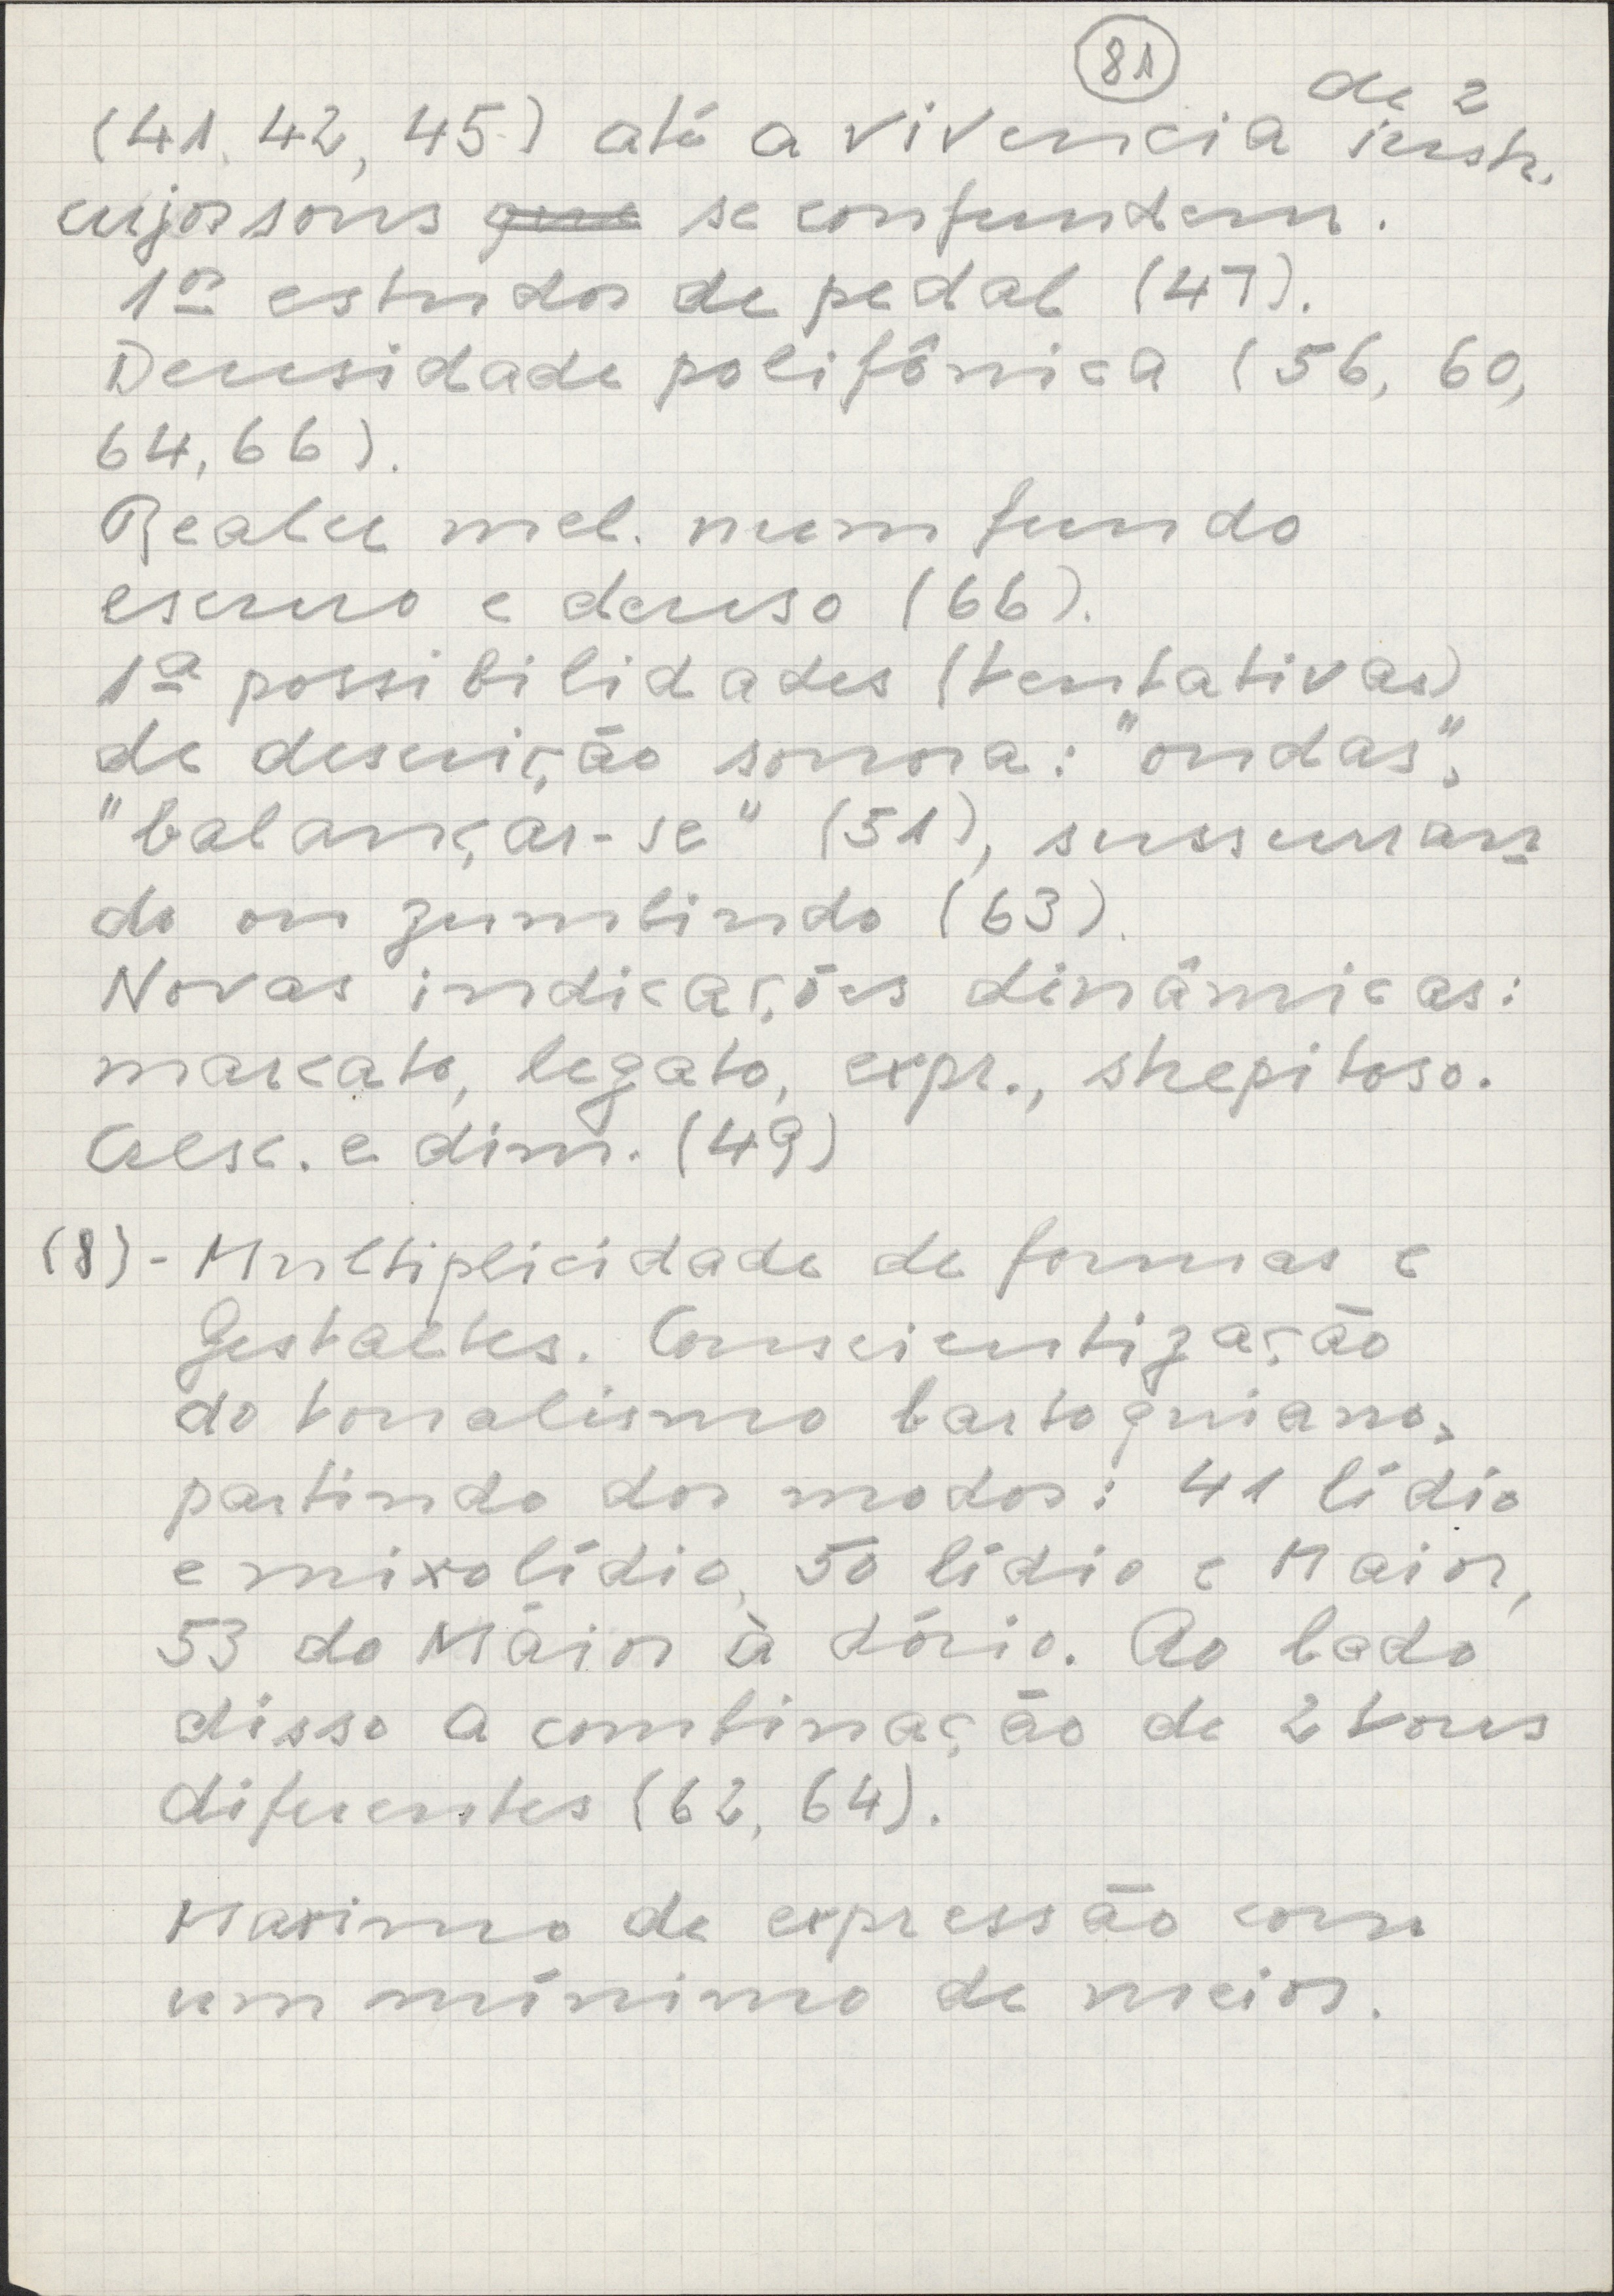 81
de 2
(41, 42, 45) até a vivencia instr.
cujos sons que se confundem.
1os estudos de pedal (47).
Densidade polifônica (56, 60,
64, 66).
Realce mel. num fundo
escuro e denso (66).
1ª possibilidades (tentativas)
de descrição sonora: "ondas",
"balançar-se" (51), sussurran
do ou zumbindo (63).
Novas indicações dinâmicas:
marcato, legato, expr., strepitoso.
Cresc. e dim. (49)
(8) - Multiplicidade de formas e
Gestaltes. Conscientização
do tonalismo bartoquiano,
partindo dos modos: 41 lídio
e mixolídio, 50 lídio e Maior,
53 do Máior à dório. Ao lado
disso a combinação de 2 tons
diferentes (62, 64).
Maximo de expressão com
um mínimo de meios.